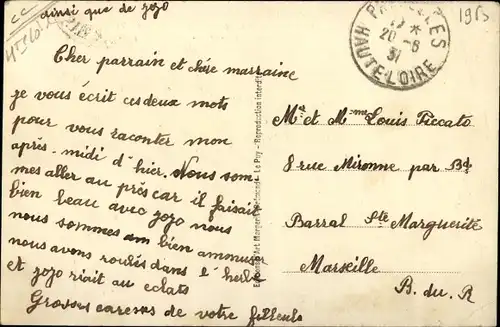 ainsi que de jojo
Cher parrain et chère marraine
je vous écrit ces deux mots
pour vous raconter mon
après-midi d'hier. Nous som-
mes aller au prés car il faisait
bien beau avec jojo nous
nous sommes bien amuser
nous avons roulés dans l'herbe
et jojo riait au eclats
Grosses careses de votre filleule
1963
20-8
31
HAUTE-LOIRE
Mr et Mme Louis Ficcato
8 rue Mironne par Bd
Barral Ste Marguerite
Marseille
B. du. R
Le Puy - Reproduction interdite